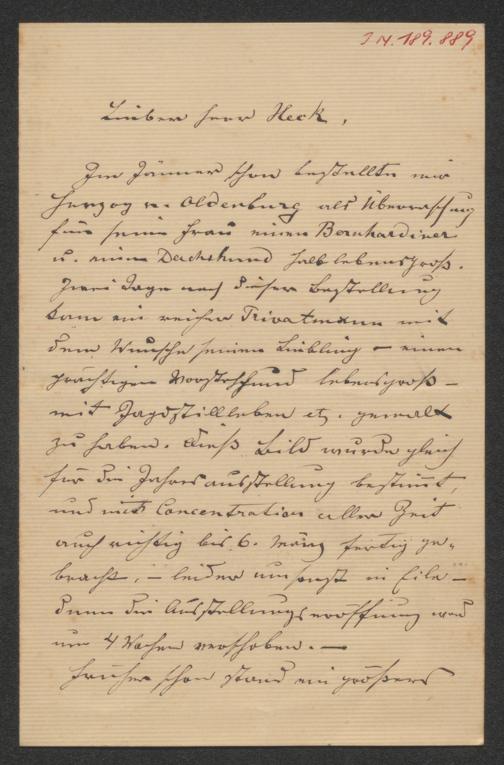 I N. 189.889
Lieber Herr Heck,
Im Jänner schon bestellte mir
Herzog v. Oldenburg als Überraschung
für seine Frau einen Bernhardiner
u. einen Dachshund halblebensgroß.
Zwei Tage nach dieser Bestellung
kam ein reicher Privatmann mit
dem Wunsche seinen Liebling – einen
prächtigen Vorstehhund lebensgroß –
mit Jagdstillleben etz. gemalt
zu haben. Dieß Bild wurde gleich
für die Jahresausstellung bestimt,
und mit Concentration aller Zeit
auch richtig bis 6. März fertig ge-
bracht, – leider umsonst in Eile –
denn die Ausstellungseröffnung ward
um 4 Wochen verschoben. –
Früher schon stand ein größeres